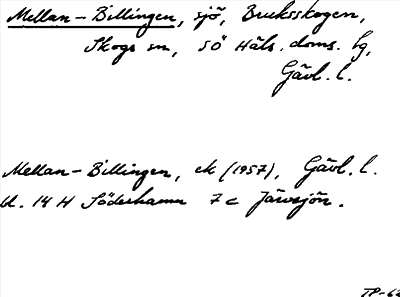 Mellan-Billingen, sjö, Bruksskogen,
Skogs sn, SÖ Häls. doms. lg,
Gävl. l.
Mellan-Billingen, ek (1957), Gävl. l.
bl. 14 H Söderhamn 7 c Järvsjön.
TP-62